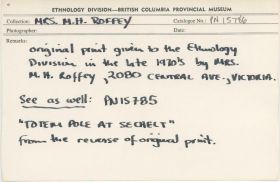 ETHNOLOGY DIVISION—BRITISH COLUMBIA PROVINCIAL MUSEUM
Collection: MRS. M.H. ROFFEY Catalogue No.: PN 15786
Photographer: Date:
Remarks:
original print given to the Ethnology
Division in the late 1970's by MRS.
M.H. ROFFEY, 2080 CENTRAL AVE., VICTORIA.
See as well: PN15785
"TOTEM POLE AT SECHELT"
from the reverse of original print.